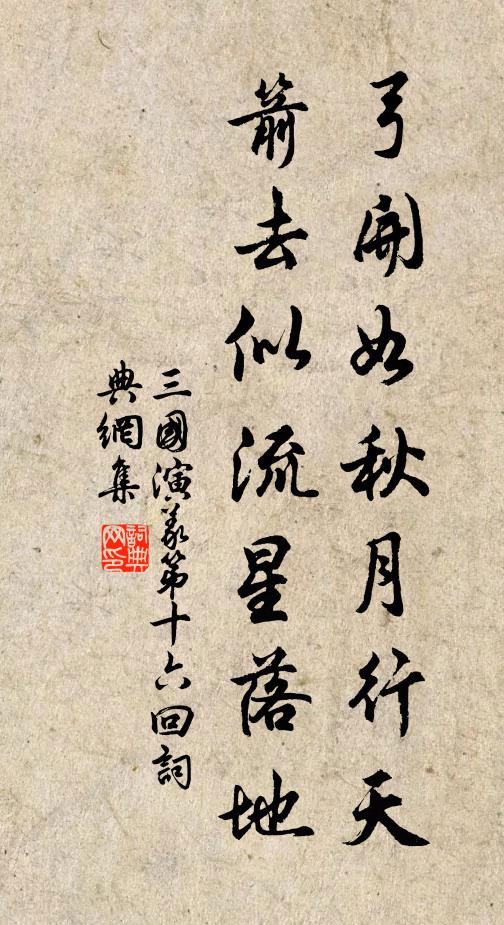 弓開如秋月行天
箭去似流星落地
三國演義第十六回詞
典網集
詞典
网印